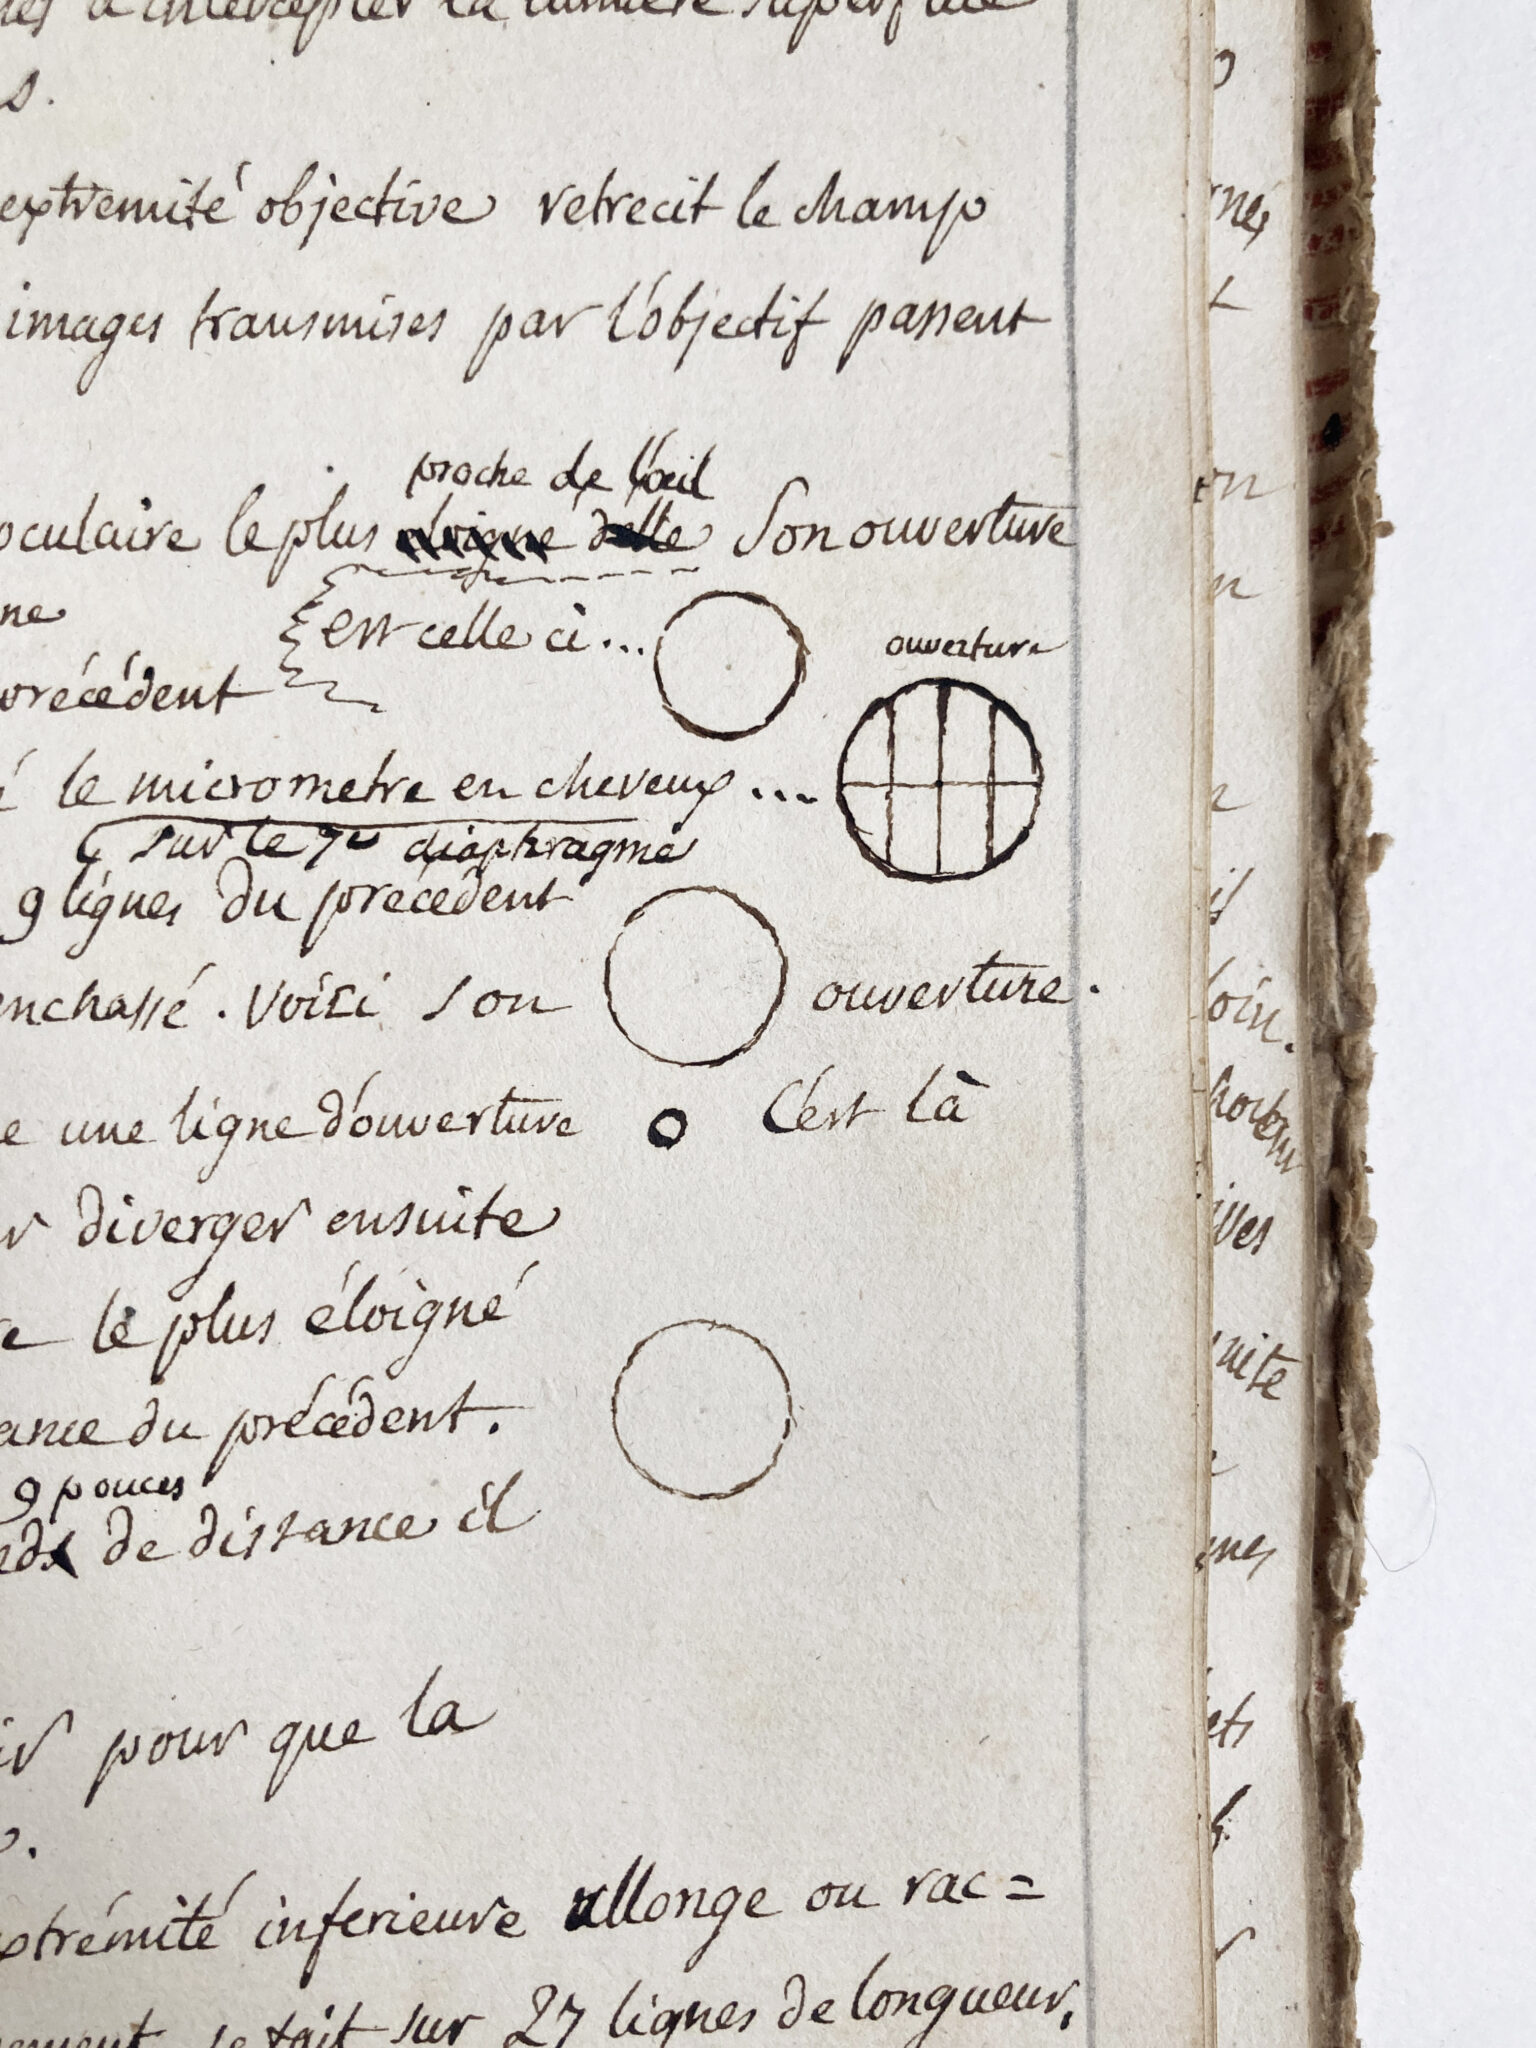 à intercepter la lumière superflue
s.
extremité objective retrecit le champ
images transmises par l'objectif passent
proche de l'œil
oculaire le plus eloigné delle Son ouverture
ne
est celle ci...
ouverture
précédent
le micrometre en cheveux ...
sur le 7e diaphragme
9 lignes du precedent
enchassé. Voici son ouverture.
e une ligne d'ouverture C'est là
r diverger ensuite
le plus éloigné
ance du précédent.
9 pouces
eds de distance il
ir pour que la
extrémité inferieure allonge ou rac=
ement se fait sur 27 lignes de longueur,
rnés
t
on
n
il
loin.
ives
uite
mes
ets